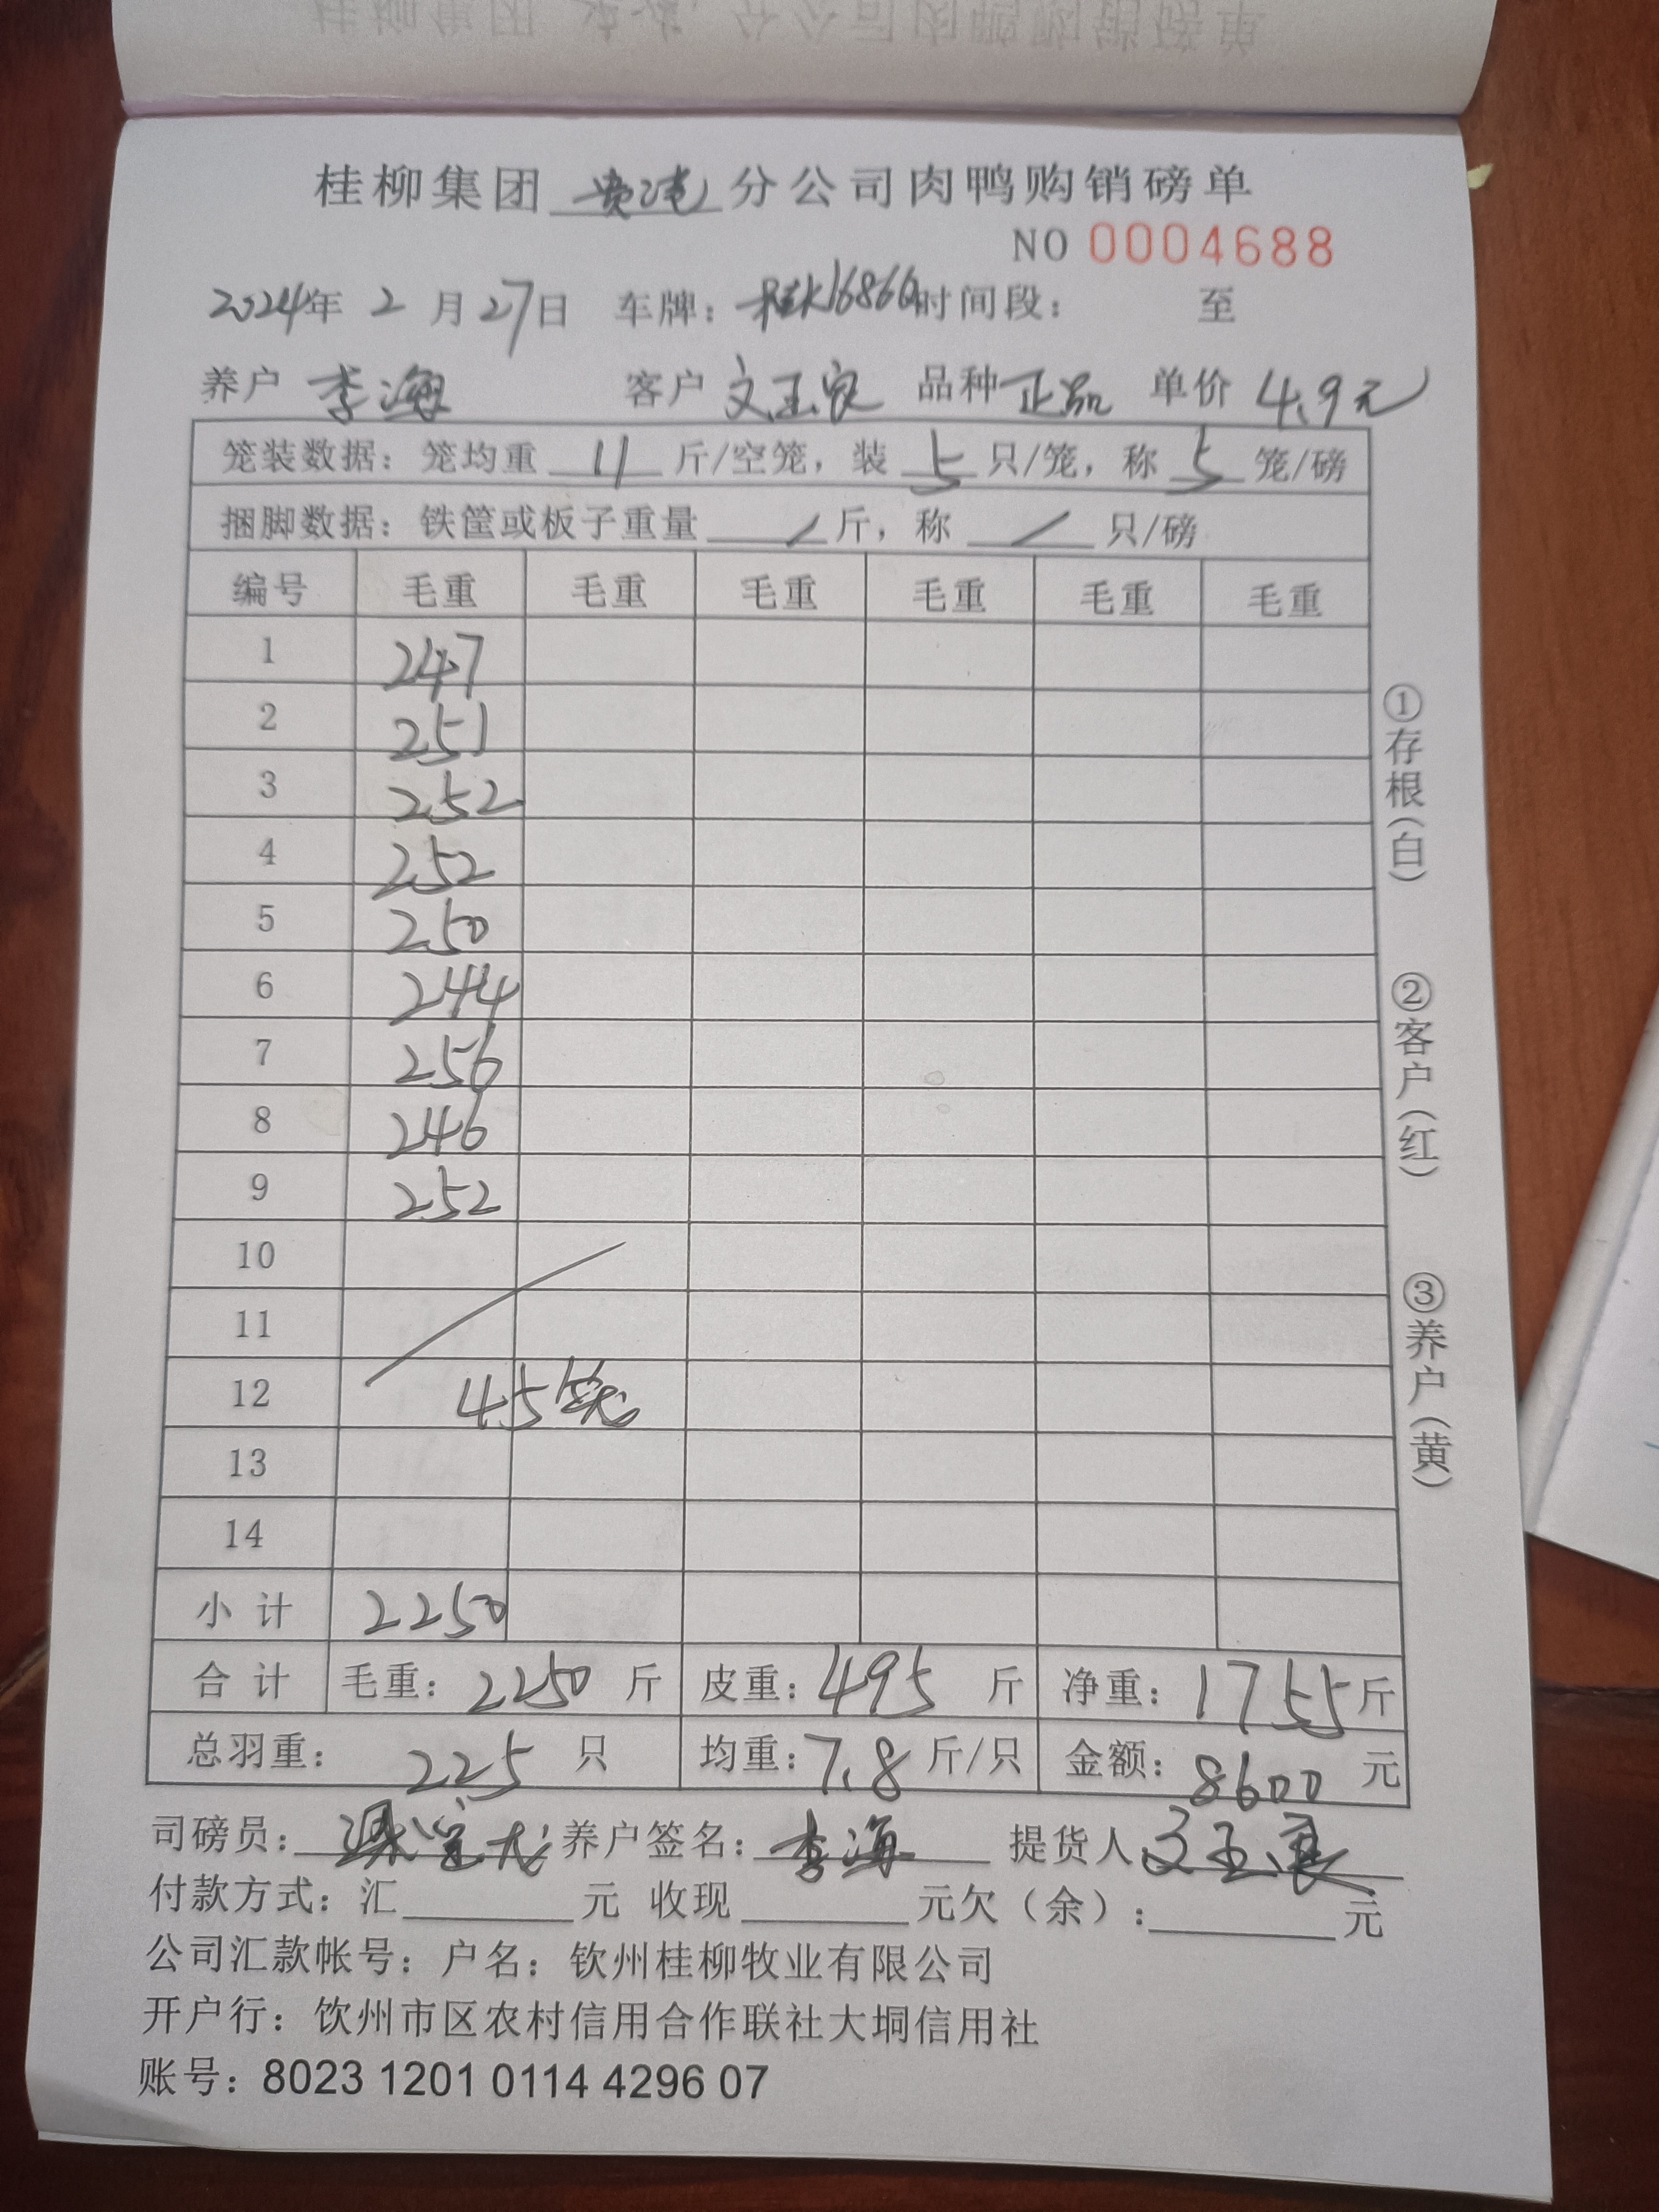 桂柳集团 贵港 分公司肉鸭购销磅单
NO 0004688
2024年 2 月 27日 车牌: 桂K16866 时间段: 至
养户 李海 客户 文玉良 品种 正品 单价 4.9元
笼装数据: 笼均重 11 斤/空笼, 装 5 只/笼, 称 5 笼/磅
捆脚数据: 铁筐或板子重量 / 斤, 称 / 只/磅
编号 毛重 毛重 毛重 毛重 毛重 毛重
1 247
2 251
3 252
4 252
5 250
6 244
7 256
8 246
9 252
10
11
12 45笼
13
14
小 计 2250
合 计 毛重: 2250 斤 皮重: 495 斤 净重: 1755斤
总羽重: 225 只 均重: 7.8 斤/只 金额: 8600 元
司磅员: 养户签名: 李海 提货人 文玉良
付款方式: 汇 元 收现 元欠(余): 元
公司汇款帐号: 户名: 钦州桂柳牧业有限公司
开户行: 饮州市区农村信用合作联社大垌信用社
账号: 8023 1201 0114 4296 07
①存根(白)
②客户(红)
③养户(黄)